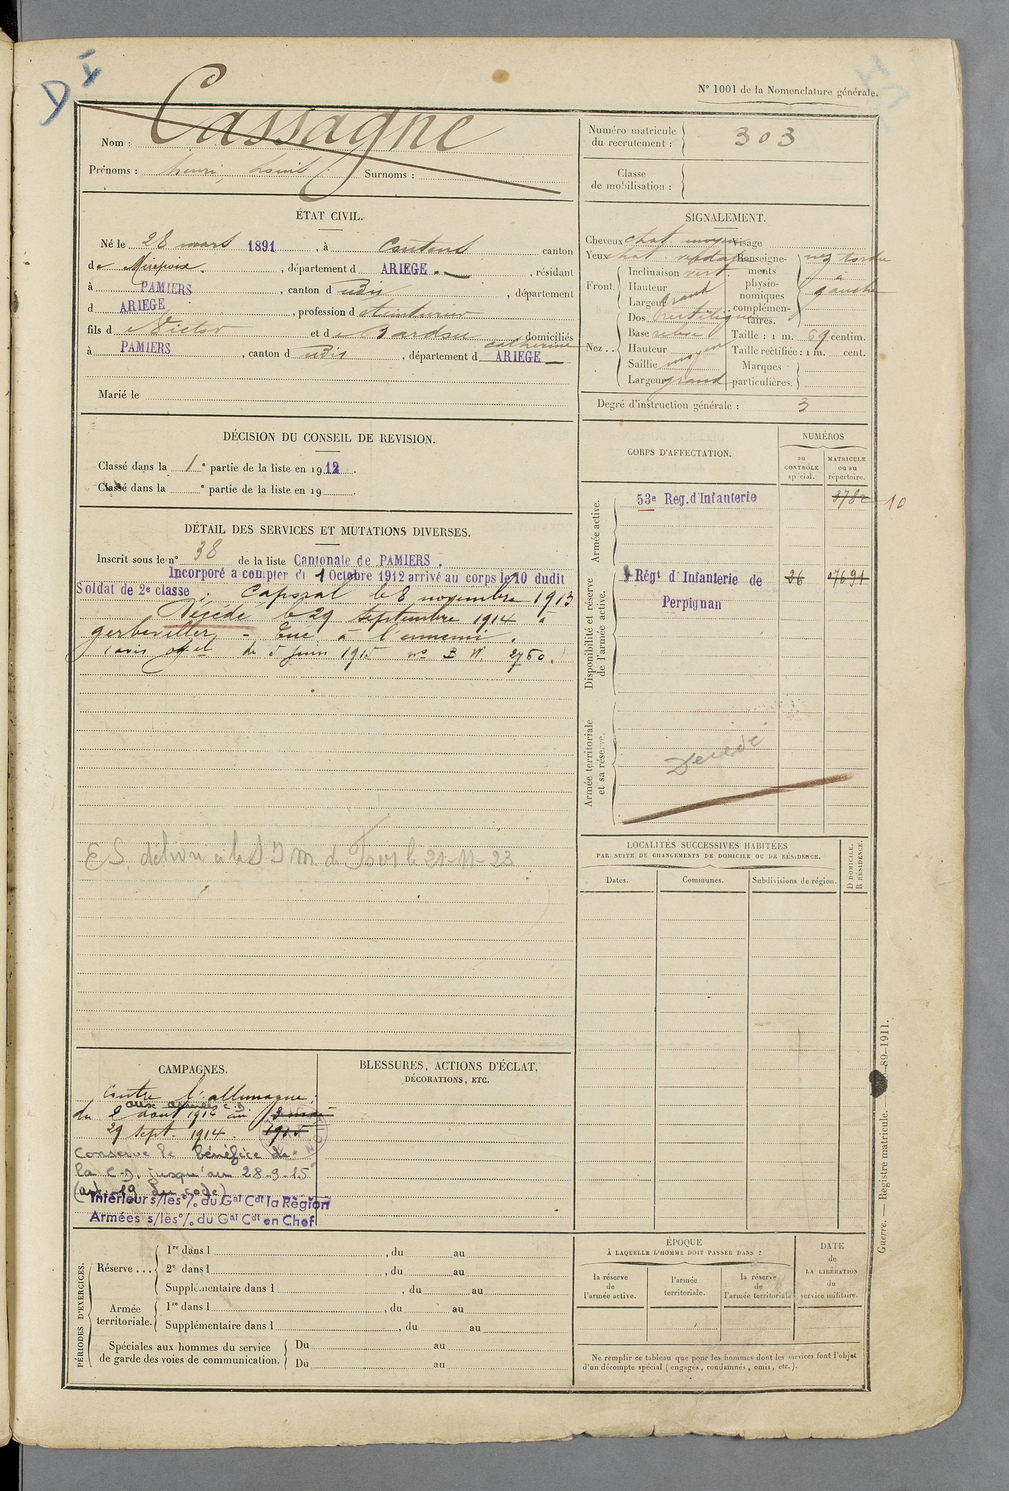 N° 1001 de la Nomenclature générale.
Nom : Cassagne
Prénoms : henri, Louis Surnoms :
Numéro matricule du recrutement : 303
Classe de mobilisation :
ÉTAT CIVIL.
Né le 28 mars 1891, à Coutens canton
de Mirepoix, département d ARIEGE, résidant
à PAMIERS, canton d udit, département
d ARIEGE, profession d
fils d e Victor et de Bardou catherine domiciliés
à PAMIERS, canton d udit, département d ARIEGE
Marié le
SIGNALEMENT.
Cheveux chat. moyen Visage
Yeux chat.
Front. Inclinaison vert.
Hauteur
Largeur grand
Nez.. Dos rectiligne
Base
Hauteur
Saillie moyen
Largeur grand
Renseignements physionomiques complémentaires. nez tordu à gauche
Taille : 1 m. 69 centim.
Taille rectifiée : 1 m. cent.
Marques particulières.
Degré d'instruction générale : 3
DÉCISION DU CONSEIL DE REVISION.
Classé dans la 1e partie de la liste en 1912.
Classé dans la e partie de la liste en 19 .
DÉTAIL DES SERVICES ET MUTATIONS DIVERSES.
Inscrit sous le n° 38 de la liste Cantonale de PAMIERS.
Incorporé a compter du 1 Octobre 1912 arrivé au corps le 10 dudit
Soldat de 2e classe ; Caporal le 8 novembre 1913
Décédé le 29 septembre 1914 à
gerbeviller, - Tué à l'ennemi.
(avis off el du 5 juin 1915 no B W. 2760.)
CORPS D'AFFECTATION.
NUMÉROS
au CONTRÔLE spécial.
MATRICULE ou au répertoire.
Armée active.
53e Reg. d'Infanterie 10
Disponibilité et réserve de l'armée active.
Régt d'Infanterie de Perpignan 26 4691
Armée territoriale et sa réserve.
Décédé
LOCALITÉS SUCCESSIVES HABITÉES
PAR SUITE DE CHANGEMENTS DE DOMICILE OU DE RÉSIDENCE.
D DOMICILE.
R RÉSIDENCE.
Dates. Communes. Subdivisions de région.
CAMPAGNES.
Contre l'allemagne,
aux armées C.D.
du 2 août 1914 au 2 mai 1915
29 sept. 1914.
Conserve le bénéfice de
la C.D. jusqu'au 28-3-15
(art. 19 du code)
Intérieur s/les o/. du Gal Cdt la Région
Armées s/les o/. du Gal Cdt en Chef
BLESSURES, ACTIONS D'ÉCLAT,
DÉCORATIONS, ETC.
PÉRIODES D'EXERCICES.
Réserve... 1re dans l , du au
2e dans l , du au
Supplémentaire dans l , du au
Armée territoriale. 1re dans l , du au
Supplémentaire dans l , du au
Spéciales aux hommes du service de garde des voies de communication. Du au
Du au
EPOQUE
À LAQUELLE L'HOMME DOIT PASSER DANS ?
la réserve de l'armée active.
l'armée territoriale.
la réserve de l'armée territoriale
DATE de LA LIBÉRATION du service militaire.
Ne remplir ce tableau que pour les hommes dont les services font l'objet
d'un décompte spécial (engagés, condamnés, omis, etc.).